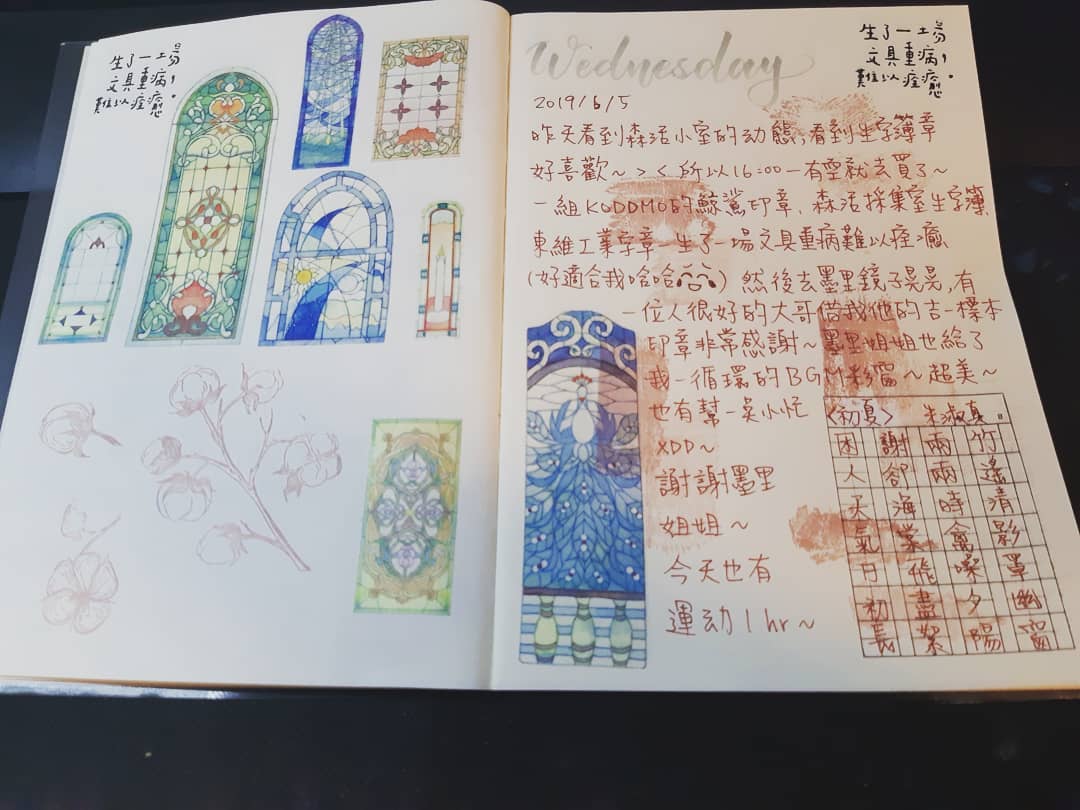 生了一場
文具重病,
難以痊癒。
Wednesday
生了一場
文具重病,
難以痊癒。
2019/6/5
昨天看到森活小室的动態,看到生字簿章
好喜歡~><所以16:00一有空就去買了~
一組KODOMO的鯨鯊印章、森活採集室生字簿
東維工業字章-生了一場文具重病難以痊癒
(好適合我哈哈) 然後去墨里鏡子晃晃,有
一位人很好的大哥借我他的吉一標本
印章非常感謝~墨里姐姐也給了
我一循環的BGM彩窗~超美~
也有幫一小忙
XDD~
謝謝墨里
姐姐~
今天也有
運动1hr~
<初夏> 朱淑真。
竹遙清影罩幽窗
兩兩時禽噪夕陽
謝卻海棠飛盡絮
困人天氣日初長